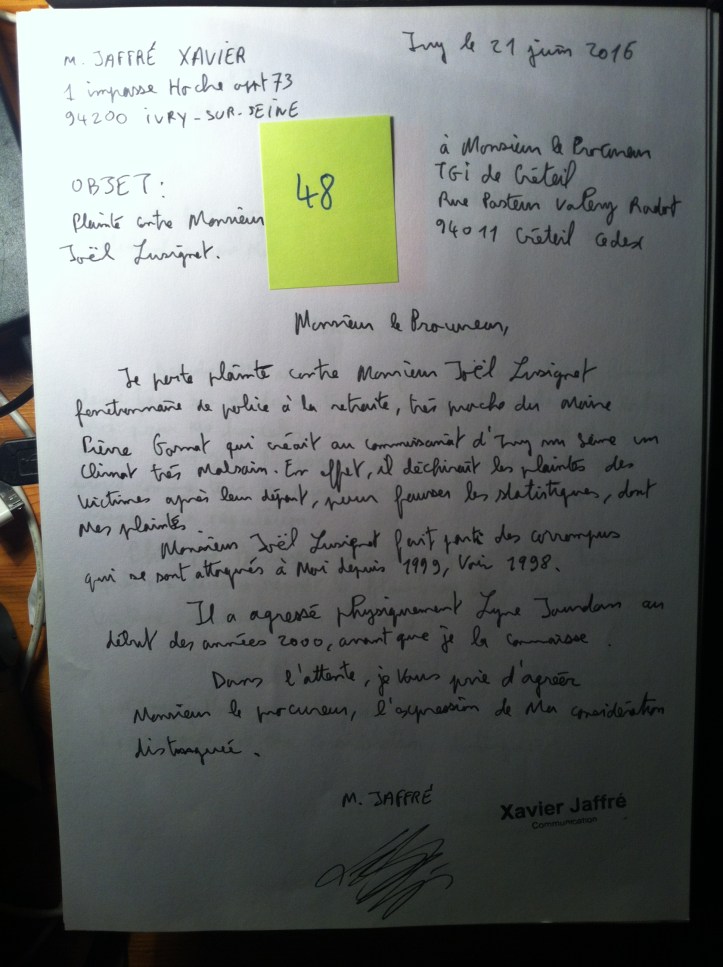 M. JAFFRÉ XAVIER
1 impasse Hoche appt 73
94200 IVRY-SUR-SEINE
Ivry le 21 juin 2016
à Monsieur le Procureur
TGI de Créteil
Rue Pasteur Valery Radot
94011 Créteil Cedex
48
OBJET:
Plainte contre Monsieur
Joël Lusignet.
Monsieur le Procureur,
Je porte plainte contre Monsieur Joël Lusignet
fonctionnaire de police à la retraite, très proche du Maire
Pierre Gosnat qui créait au commissariat d'Ivry sur Seine un
Climat très Malsain. En effet, il déchirait les plaintes des
Victimes après leur départ, pour fausser les statistiques, dont
Mes plaintes.
Monsieur Joël Lusignet fait partie des corrompus
qui se sont attaqués à Moi depuis 1999, Voir 1998.
Il a agressé physiquement Lyne au
début des années 2000, avant que je la connaisse.
Dans l'attente, je Vous prie d'agréer
Monsieur le procureur, l'expression de Ma considération
distinguée.
M. JAFFRÉ
Xavier Jaffré
Communication